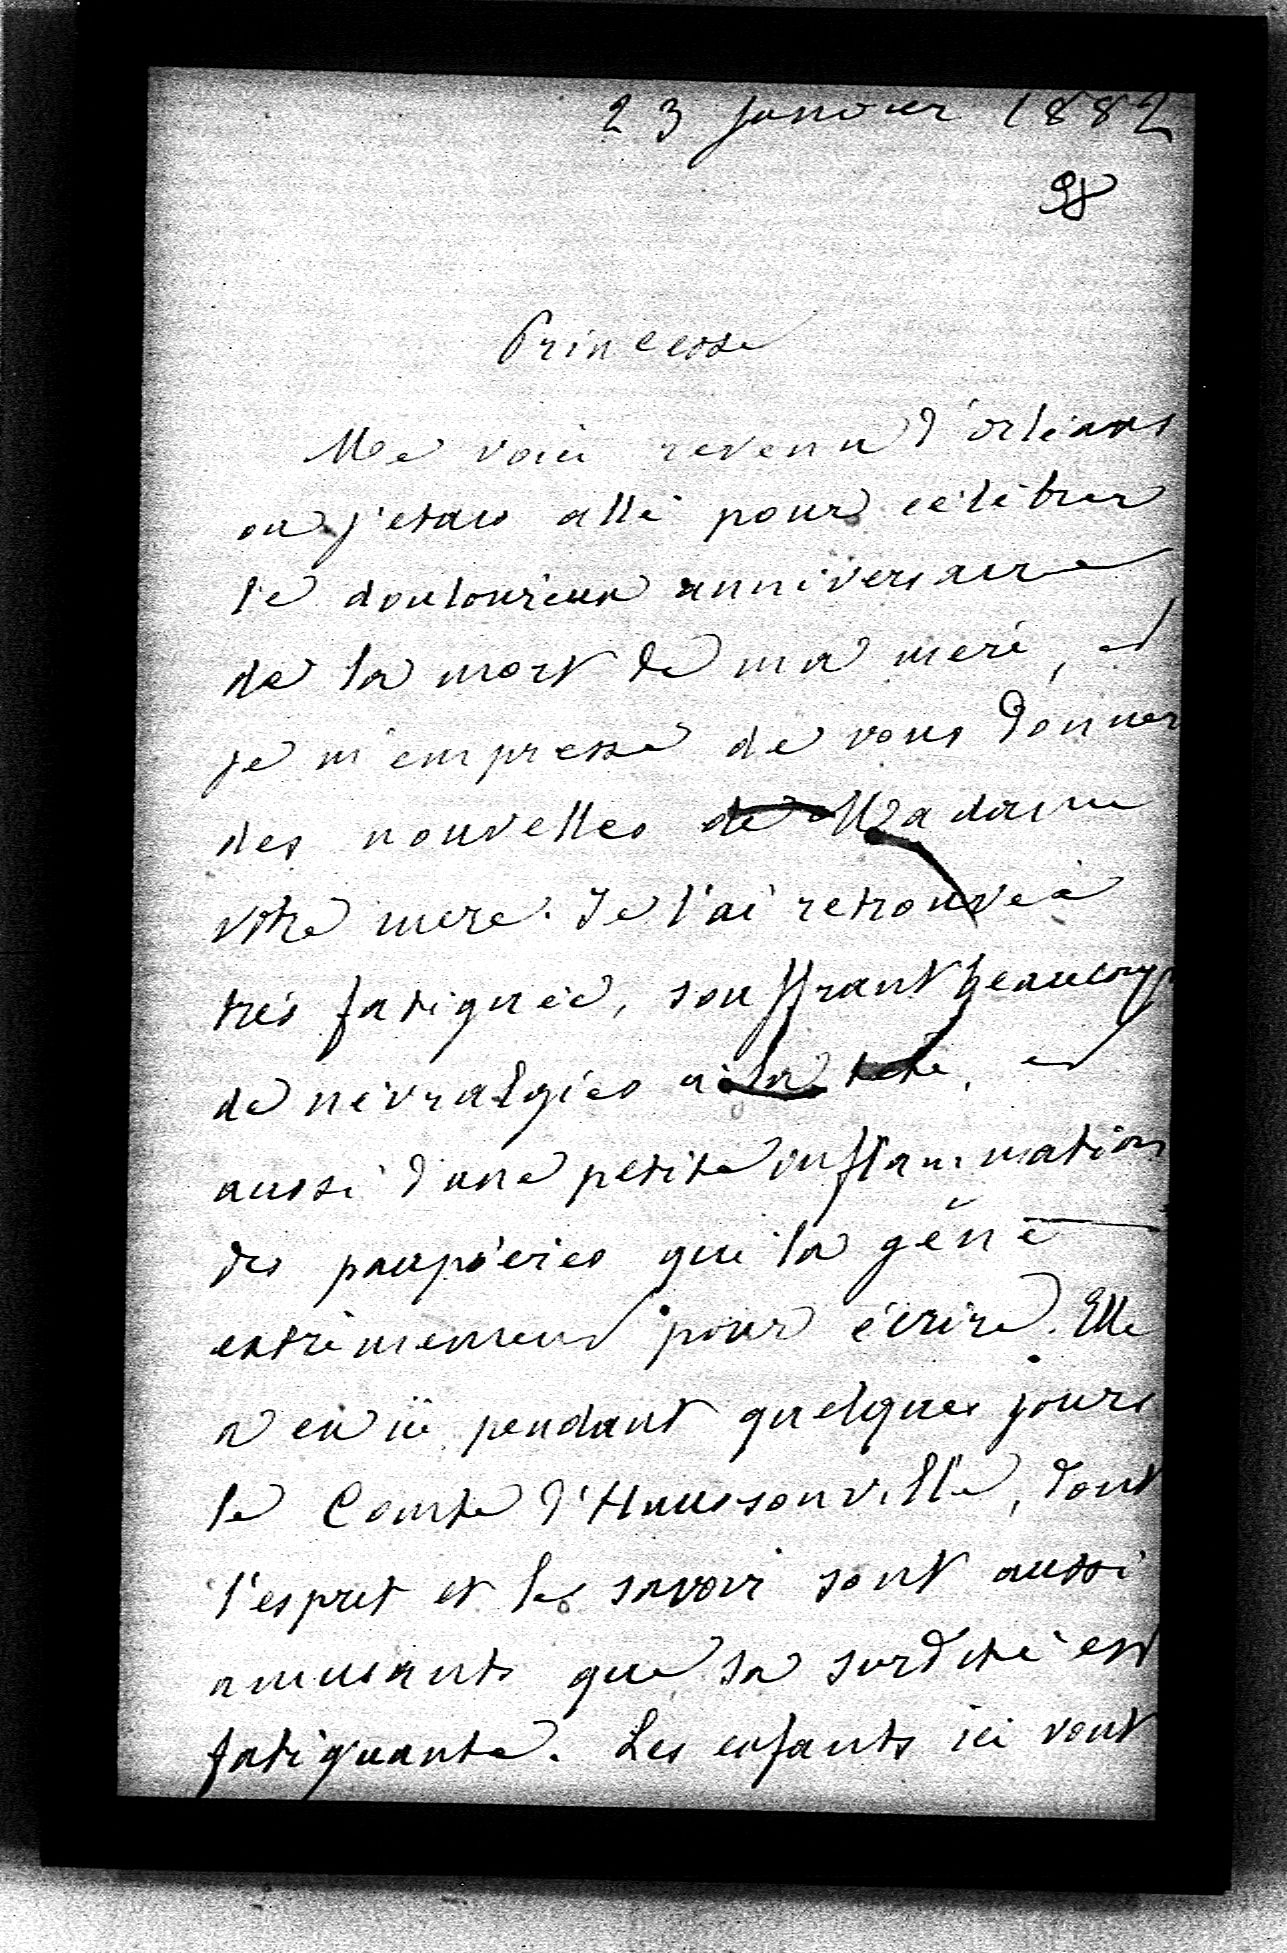 23 Janvier 1882
98
Princesse
Me voici revenu d'orléans
ou j'etais allé pour célébrer
le douloureux anniversaire
de la mort de ma mère, et
je m'empresse de vous donner
des nouvelles de Madame
votre mere. Je l'ai retrouvée
très fatiguée, souffrant beaucoup
de névralgies à la tête, et
aussi d'une petite inflammation
des paupières qui la gêne
extrêmement pour écrire. Elle
a eu ici pendant quelques jours
le Comte d'Haussonville, dont
l'esprit et le savoir sont aussi
amusants que sa surdité est
fatiguante. Les enfants ici vont